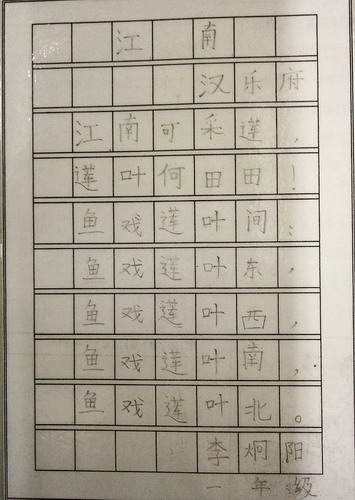 江南
汉乐府
江南可采莲，
莲叶何田田！
鱼戏莲叶间；
鱼戏莲叶东，
鱼戏莲叶西，
鱼戏莲叶南，
鱼戏莲叶北。
李炯阳
一年级